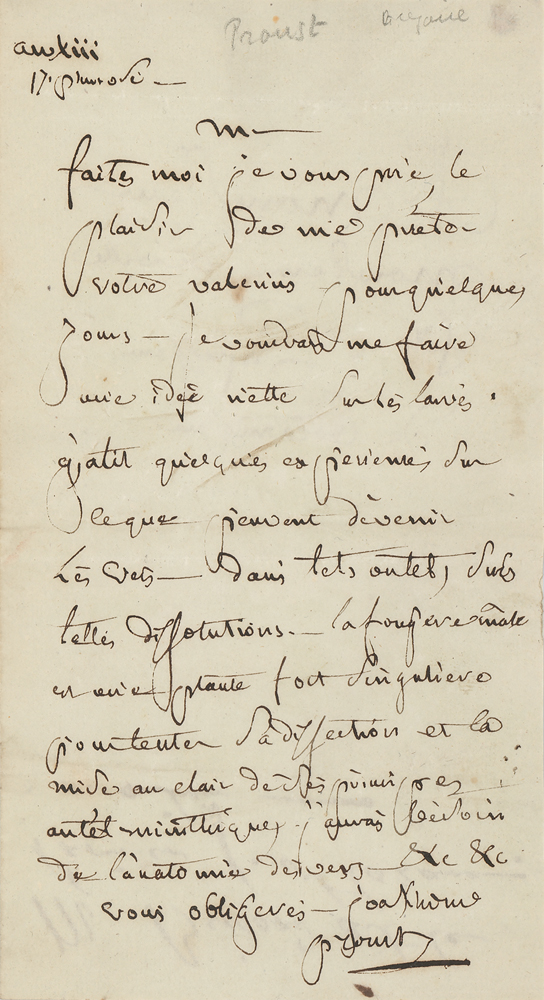 Proust
an xiii
17 pluviose —
M —
faites moi je vous prie le
plaisir de me prêter
votre valerius pour quelques
jours — je voudrais me faire
une idée nette sur les larves.
quelques experiences sur
ce que peuvent devenir
Les vers — dans tels ou tels sucs
telles dissolutions. — la fougere male
est une plante fort singuliere
pour tenter sa dissection et la
mise au clair de ses principes
antelminthiques. j'aurai besoin
de l'anatomie des vers — &c &c
vous obligeres — joachime
proust